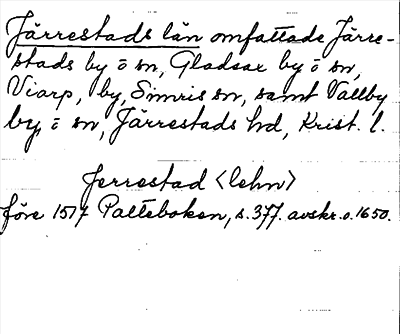 Järrestads län omfattade Järre-
stads by o sn, Gladsax by o sn,
Viarp, by, Simris sn, samt Vallby
by, o sn, Järrestads hd, Krist. l.
Jerrestad <lehn>
före 1517 Palteboken, s. 377. avskr. o. 1650.